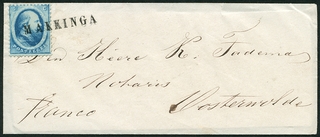 MAKKINGA
Den Heere K. Tadema
Notaris
Franco Oosterwolde